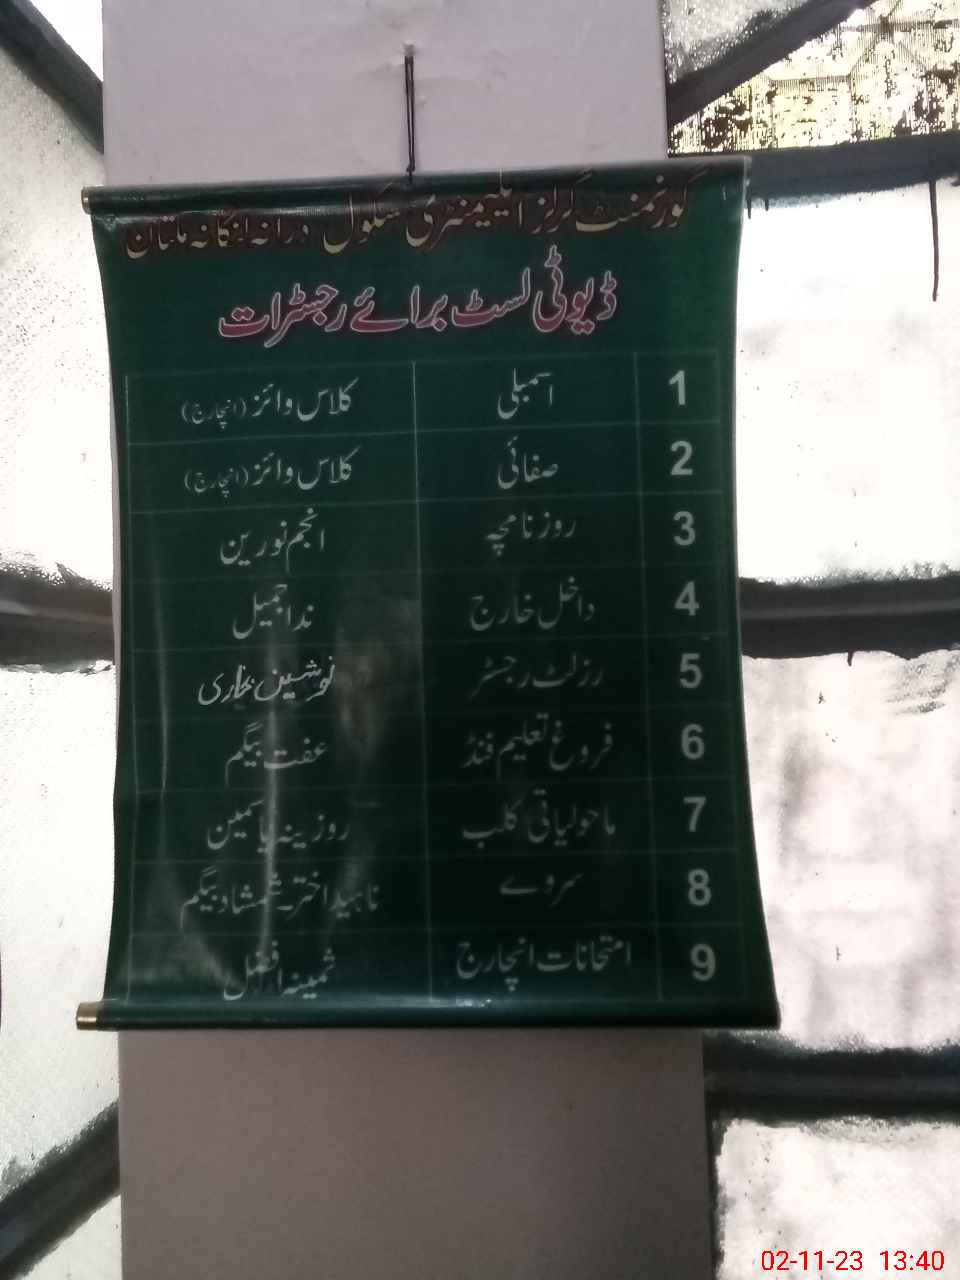 گورنمنٹ گرلز ایلیمنٹری سکول درانہ لنگانہ ملتان
ڈیوٹی لسٹ برائے رجسٹرات
1 اسمبلی کلاس وائز (انچارج)
2 صفائی کلاس وائز (انچارج)
3 روزنامچہ انجم نورین
4 داخل خارج ندا جمیل
5 رزلٹ رجسٹر نوشین بخاری
6 فروغ تعلیم فنڈ عفت بیگم
7 ماحولیاتی کلب روزینہ یاسمین
8 سروے ناہید اختر۔شمشاد بیگم
9 امتحانات انچارج ثمینہ افضل
02-11-23 13:40